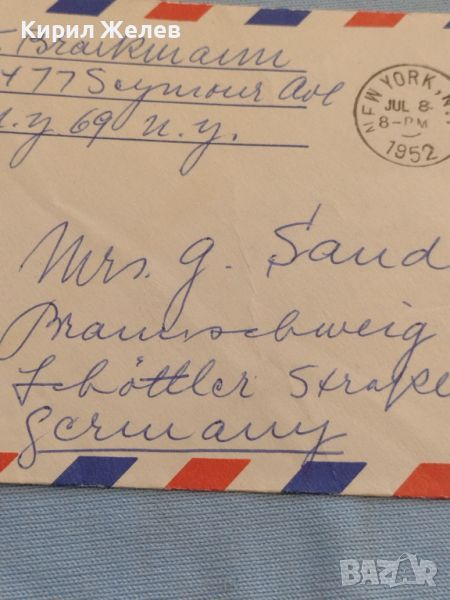 Кирил Желев
Brackmann
477 Seymour Ave
N.Y. 69 N.Y.
NEW YORK, N.Y.
JUL 8
8-PM
1952
Mrs. G. Sand
Braunschweig
Schöttler Straße
Germany
BAZAR